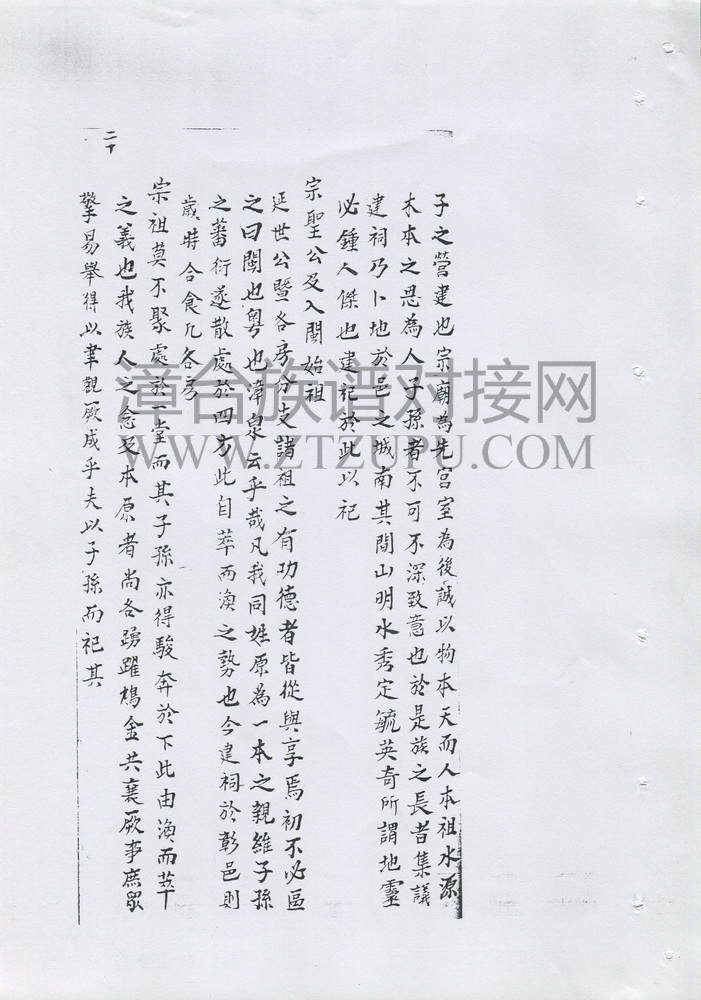 子之營建也宗廟為先宮室為後誠以物本天而人本祖水源
木本之思為人子孫者不可不深致意也於是族之長者集議
建祠乃卜地於邑之城南其間山明水秀定毓英奇所謂地靈
必鍾人傑也建祀於此以祀
宗聖公及入閩始祖
延世公暨各房分支諸祖之有功德者皆從與享焉初不必區
之曰閩也粵也漳泉云乎哉凡我同姓原為一本之親維子孫
之蕃衍遂散處於四方此自萃而渙之勢也今建祠於彰邑則
歲時合食凡各房
宗祖莫不聚處於一堂而其子孫亦得駿奔於下此由渙而萃
之義也我族人之念及本原者尚各踴躍鳩金共襄厥事庶眾
擎易舉得以聿觀厥成乎夫以子孫而祀其
二十
漳台族谱对接网
WWW.ZTZUPU.COM